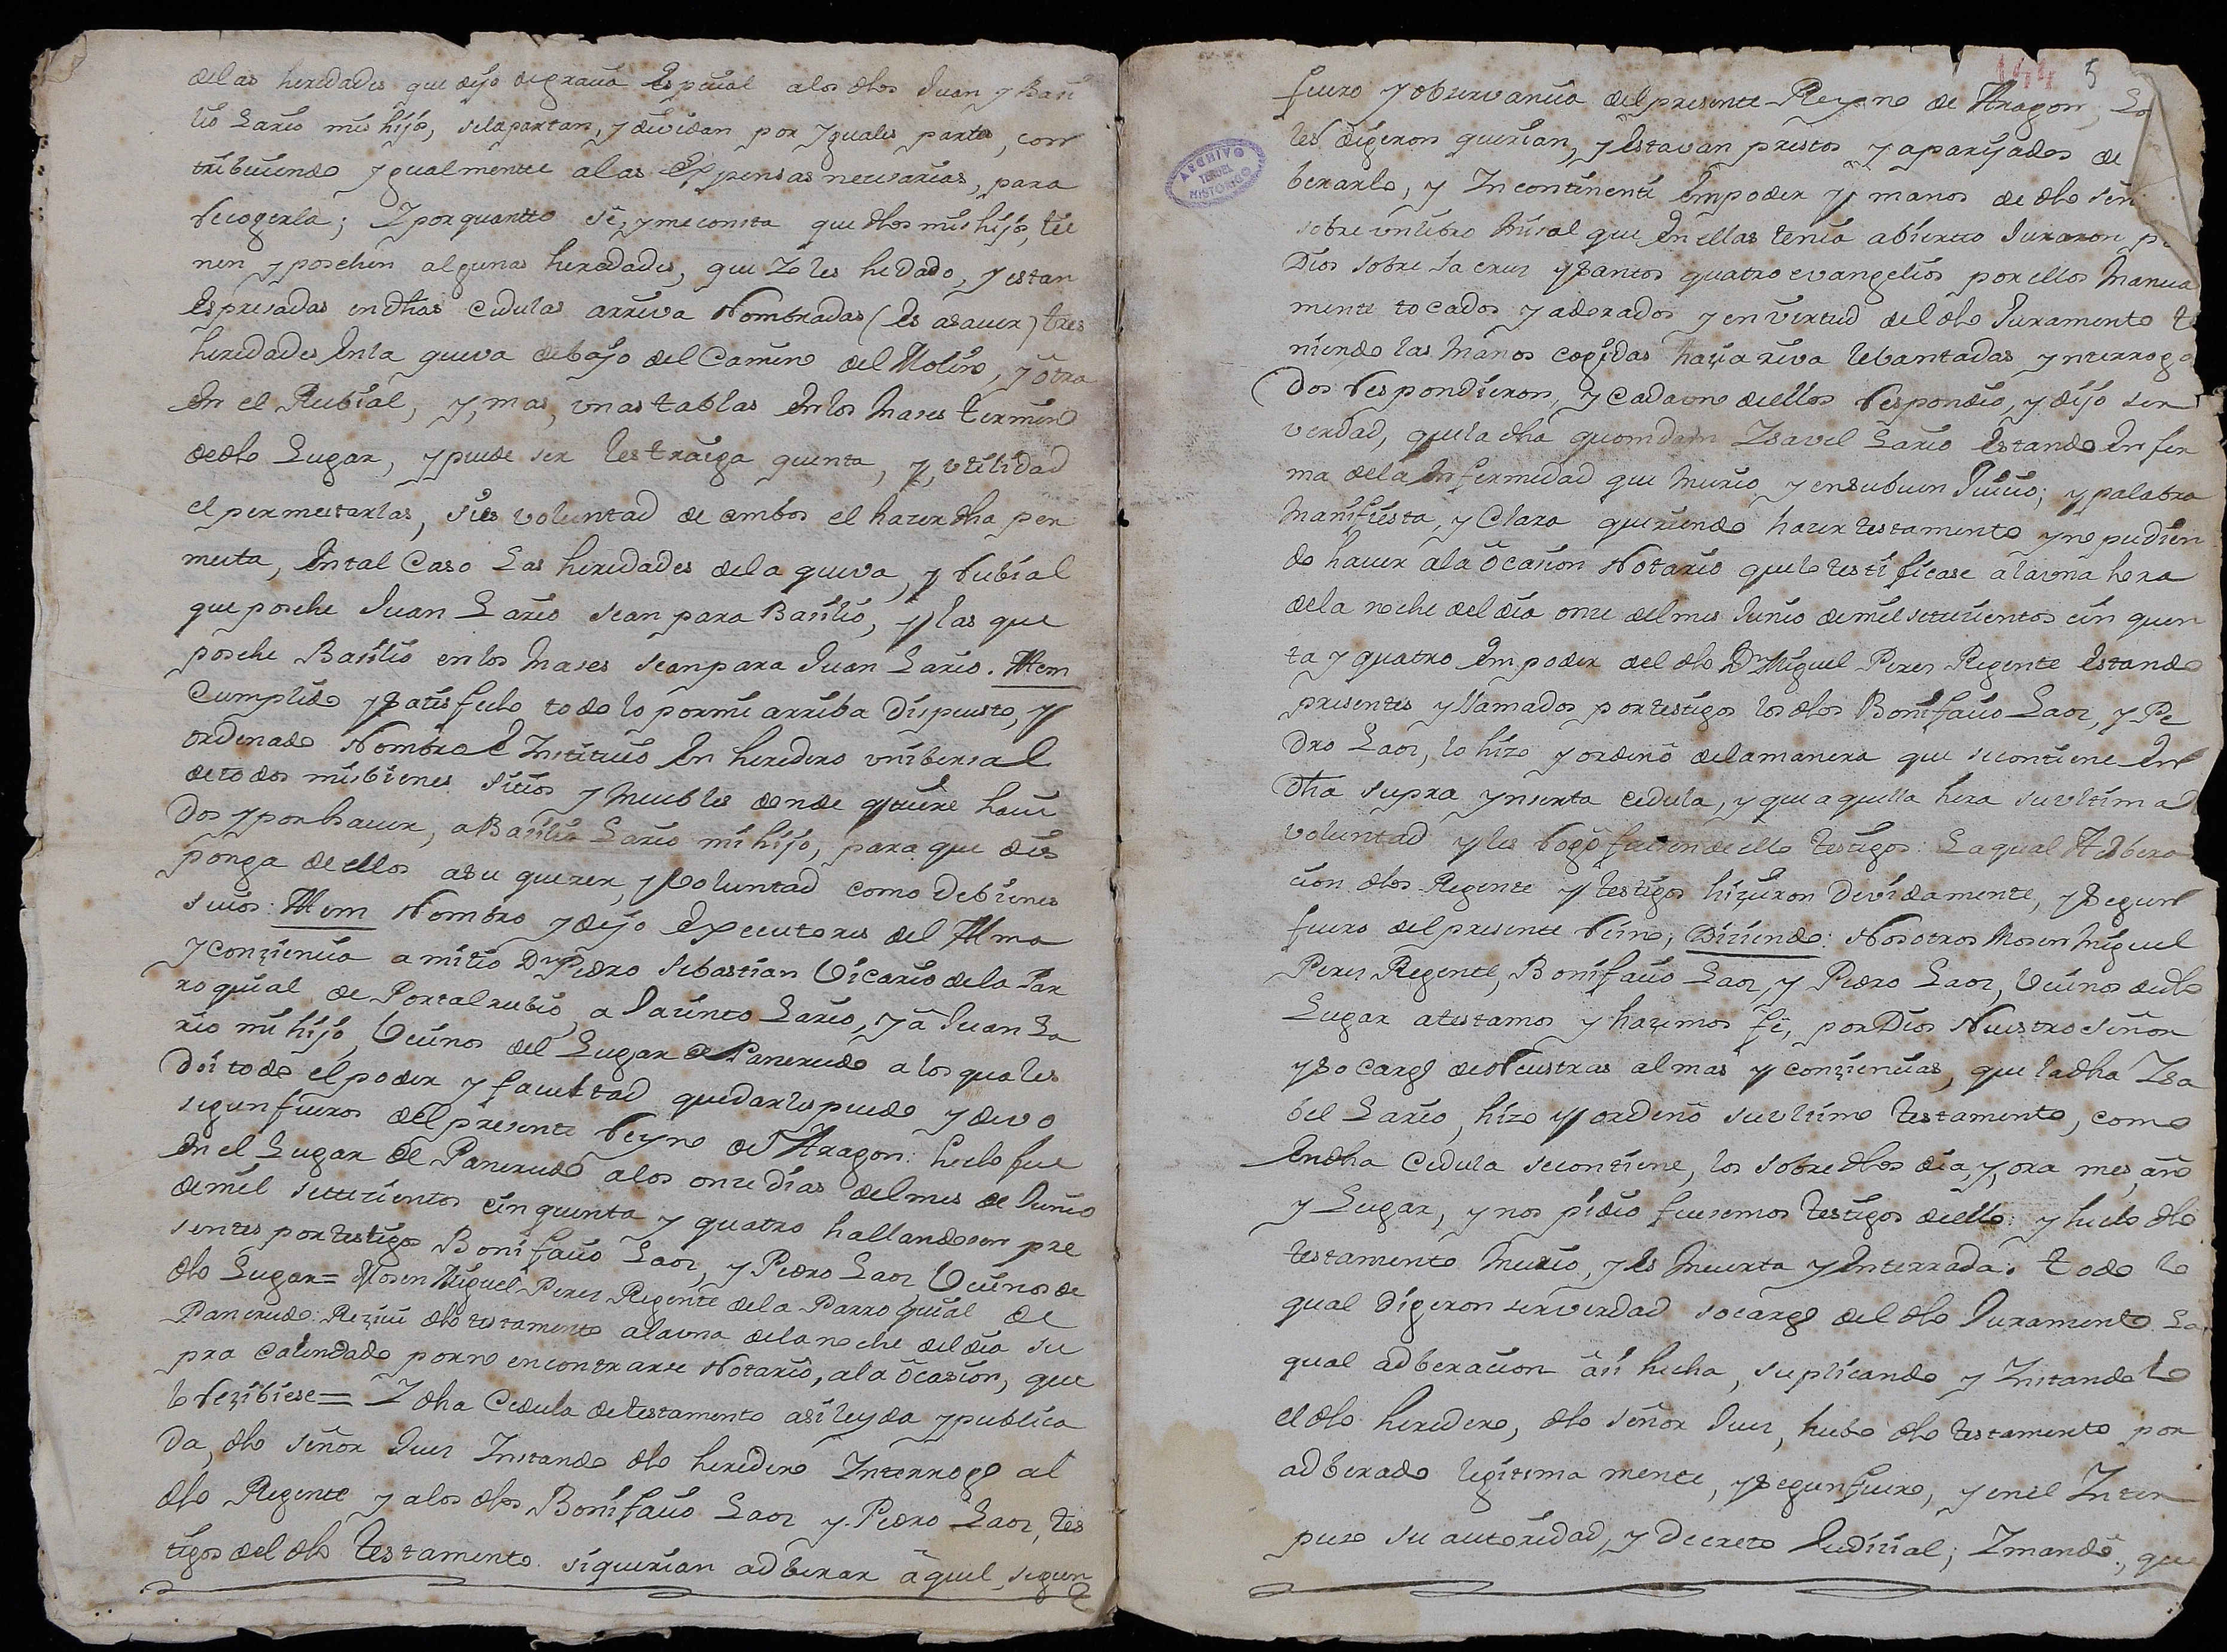 delas heredades que dejo de gracia Espeçial alos dhos Juan y Basi
lio Lario mis hijos, sela partan, y dividan por Yguales partes, con
tribuiendo Ygualmente alas Expensas neçesarias, para
Recogerla; Y por quantto sè, y me consta que dhos mis hijos, tie
nen y posehen algunas heredades, que Yo les he dado, y estan
Espresadas en dhas Cedulas arriva Nombradas (Es asaver) tres
heredades En la queva debajo del Camino del Molino, y otra
En el Rubial, y, mas, vnas tablas En los Mases termino
de dho Lugar, y puede ser les traiga quenta, y, vtilidad
el permutarlas, si es voluntad de ambos el hazer dha per
muta, En tal Caso Las heredades de la queva, y Rubial
que posehe Juan Lario sean para Basilio, y las que
posehe Basilio en los Mases sean para Juan Lario. Ittem
Cumplido y satisfecho todo lo por mi arriba Dispuesto, y
ordenado Nombro è Instituio En heredero vnibersal
de todos mis bienes sitios y Muebles donde quiere havi
dos y por haver, a Basilio Lario mi hijo, para que dis
ponga de ellos a su querer, y Voluntad como de bienes
suios: Ittem Nombro y dejo Executores del Alma
y conçiençia a mi tio Dn Pedro Sebastian Vicario de la Par
roquial de Portalrubio, a Jacinto Lario, y â Juan La
rio mi hijo, Vecinos del Lugar de Pancrudo a los quales
Doi todo el poder y facultad que darles puedo y devo
segun fueros del presente Reyno de Aragon: hecho fue
En el Lugar de Pancrudo a los onze dias del mes de Junio
de mil settezientos cinquenta y quatro hallandosen pre
sentes por testigos Bonifacio Laoz, y Pedro Laoz Vecinos de
dho Lugar= Mosen Miguel Perez Regente de la Parroquial de
Pancrudo: Reçivi dho testamento a la vna de la noche del dia su
pra Calendado por no encontrarse Notario, a la ocasion, que
lo Reçibiese= Y dha Cedula de testamento asi leyda y publica
da, dho señor Juez Instando dho heredero Interrogo al
dho Regente y a los dhos Bonifacio Laoz y Pedro Laoz, tes
tigos del dho testamento si querian adberar âquel, segun
fuero y observancia del presente Reyno de Aragon, Lo
les digeron querian, y Estavan prestos y aparejados de
berarlo, y Incontinenti En poder y manos de dho señ
sobre vn libro Misal que En ellas tenia abiertto Juraron p
Dios sobre la cruz y santos quatro evangelios por ellos Manua
mente tocados y adorados y en virtud del dho Juramento te
niendo las manos cogidas haçia riva lebantadas ynterroga
dos Respondieron, y cada vno de ellos Respondio, y dijo ser
verdad, que la dha quomdam Ysavel Lario Estando Enfer
ma de la Enfermedad que Murio y en su buen Juicio; y palabra
Manifiesta, y Clara queriendo hazer testamento y no pudien
do haver a la ôcasion Notario que lo testificase a la vna hora
de la noche del dia onze del mes Junio de mil settezientos cinquen
ta y quatro En poder del dho Dn Miguel Perez Regente Estando
presentes y llamados por testigos los dhos Bonifacio Laoz, y Pe
dro Laoz, lo hizo y ordenò de la manera que se contiene En
dha supra ynserta cedula, y que aquella hera su vltima
voluntad y les Rogò fuesen de ello testigos: La qual Adbera
cion dhos Regente y testigos hiçieron Devidamente, y segun
fuero del presente Reino; Diziendo: Nosotros Mosen Miguel
Perez Regente, Bonifacio Laoz y Pedro Laoz, Vecinos de dho
Lugar atestamos y hazemos fè, por Dios Nuestro Señor
y so cargo de Nuestras almas y conçiençias, que la dha Ysa
bel Lario, hizo y ordenò su vltimo testamento, como
En dha Cedula se contiene, los sobre dhos dia, y, ora mes, año
y Lugar, y nos pidio fuesemos testigos de ello: y hecho dho
testamento Murio, y Es Muerta y Enterrada: todo lo
qual digeron ser verdad so cargo del dho Juramento La
qual adberacion âsi hecha, suplicando y Instandolo
el dho heredero, dho señor Juez, hubo dho testamento por
adberado legitimamente, y segun fuero, y en el Inter
puso su autoridad, y Decreto Judicial; Y mandò, que
ARCHIVO
TERUEL
HISTORICO
144
5